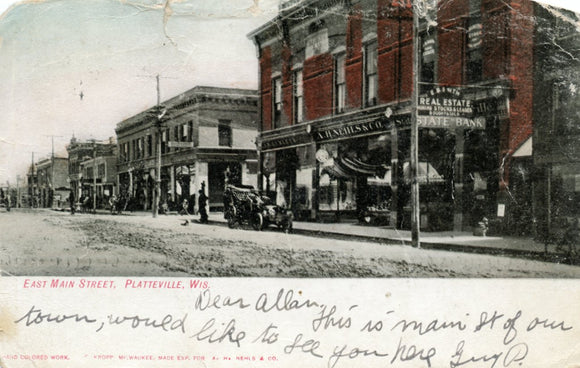 REAL ESTATE
STATE BANK
A.H. NEHLS & CO.
EAST MAIN STREET, PLATTEVILLE, WIS.
Dear Allan This is main st of our
town, would like to see you here Guy P.
HAND COLORED WORK. KROPP. MILWAUKEE, MADE EXP. FOR A. H. NEHLS & CO.